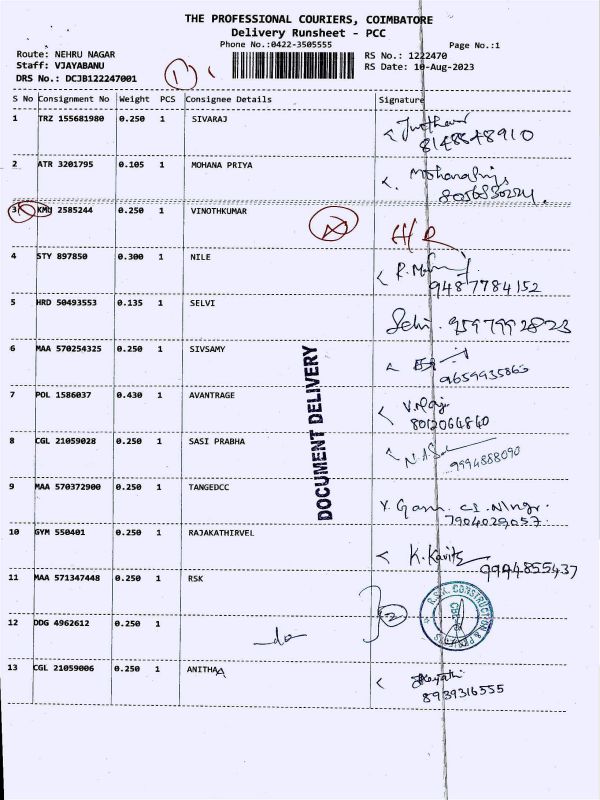 THE PROFESSIONAL COURIERS, COIMBATORE
Delivery Runsheet - PCC
Phone No.:0422-3505555
Page No.:1
Route: NEHRU NAGAR
RS No.: 1222470
Staff: VJAYABANU
RS Date: 10-Aug-2023
DRS No.: DCJB122247001
1
S No Consignment No Weight PCS Consignee Details Signature
1 TRZ 155681980 0.250 1 SIVARAJ
8148548910
2 ATR 3201795 0.105 1 MOHANA PRIYA
Mohanapriya
3 KMU 2585244 0.250 1 VINOTHKUMAR
4 STY 897850 0.300 1 NILE
9487784152
5 HRD 50493553 0.135 1 SELVI
Selvi. 9597992823
6 MAA 570254325 0.250 1 SIVSAMY
9659935863
7 POL 1586037 0.430 1 AVANTRAGE
8012064840
8 CGL 21059028 0.250 1 SASI PRABHA
9994888090
9 MAA 570372900 0.250 1 TANGEDCC
7904029057
10 GYM 550401 0.250 1 RAJAKATHIRVEL
K. Kavitz
9994855437
11 MAA 571347448 0.250 1 RSK
12 DDG 4962612 0.250 1
do
2
R.S.K. CONSTRUCTION & PROJECTS
13 CGL 21059006 0.250 1 ANITHAA
8939316555
DOCUMENT DELIVERY